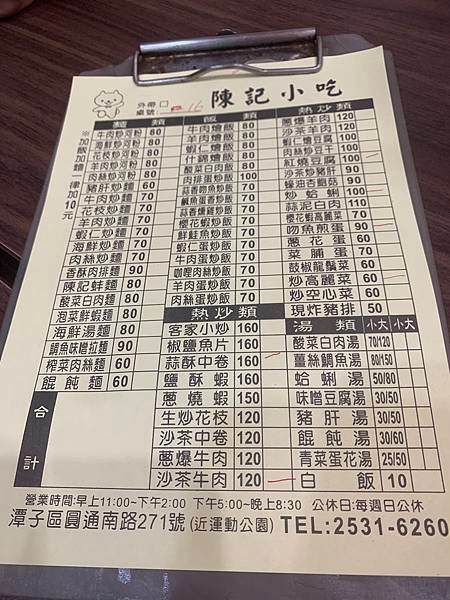 陳記小吃
外帶□
桌號: 16
※加飯加麵一律加10元
麵類
牛肉炒河粉 80
海鮮炒河粉 80
花枝炒河粉 80
羊肉炒河粉 80
肉絲炒河粉 80
豬肝炒麵 60
牛肉炒麵 70
花枝炒麵 70
羊肉炒麵 70
蝦仁炒麵 70
海鮮炒麵 70
肉絲炒麵 60
香酥肉排麵 90
陳記蚌麵 80
酸菜白肉麵 80
泡菜鮮蝦麵 80
海鮮湯麵 80
鯛魚味噌拉麵 90
榨菜肉絲麵 60
餛飩麵 60
合計
飯類
牛肉燴飯 80
羊肉燴飯 80
蝦仁燴飯 80
什錦燴飯 80
酸菜白肉飯 80
肉排蛋炒飯 90
蒜香吻魚炒飯 70
鹹魚蛋香炒飯 70
蒜香燻雞炒飯 70
鮮鮭魚炒飯 70
蝦仁蛋炒飯 70
牛肉蛋炒飯 70
咖哩肉絲炒飯 70
羊肉蛋炒飯 70
肉絲蛋炒飯 60
熱炒類
客家小炒 160
椒鹽魚片 160
蒜酥中卷 160
鹽酥蝦 160
蔥燒蝦 150
生炒花枝 120
沙茶中卷 120
蔥爆牛肉 120
沙茶牛肉 120
熱炒類
蔥爆羊肉 120
沙茶羊肉 120
蝦仁燴豆腐 100
肉絲炒豆干 100
紅燒豆腐 100
沙茶炒豬肝 100
蠔油杏鮑菇 90
炒蛤蜊 100
蒜泥白肉 110
櫻花蝦高麗菜 70
吻魚煎蛋 90
蔥花蛋 60
菜脯蛋 70
豉椒龍鬚菜 60
炒高麗菜 60
炒空心菜 60
現炸豬排 50
湯類 小大 小大
酸菜白肉湯 70/120
薑絲鯛魚湯 80/150
蛤蜊湯 50/80
味噌豆腐湯 30/50
豬肝湯 30/50
餛飩湯 30/60
青菜蛋花湯 25/50
白飯 10
營業時間:早上11:00~下午2:00 下午5:00~晚上8:30 公休日:每週日公休
潭子區圓通南路271號 (近運動公園) TEL:2531-6260